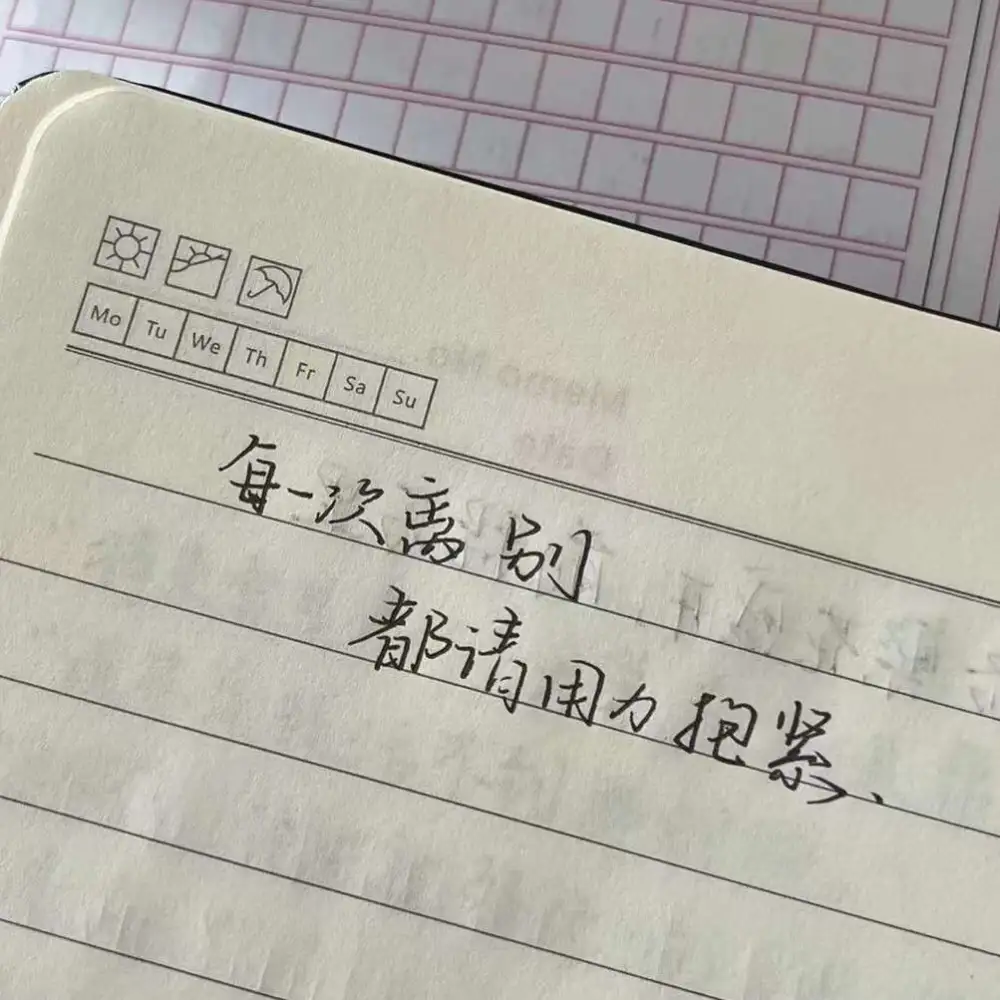 Mo Tu We Th Fr Sa Su
Memo No.
Date
每一次离别
都请用力抱紧、